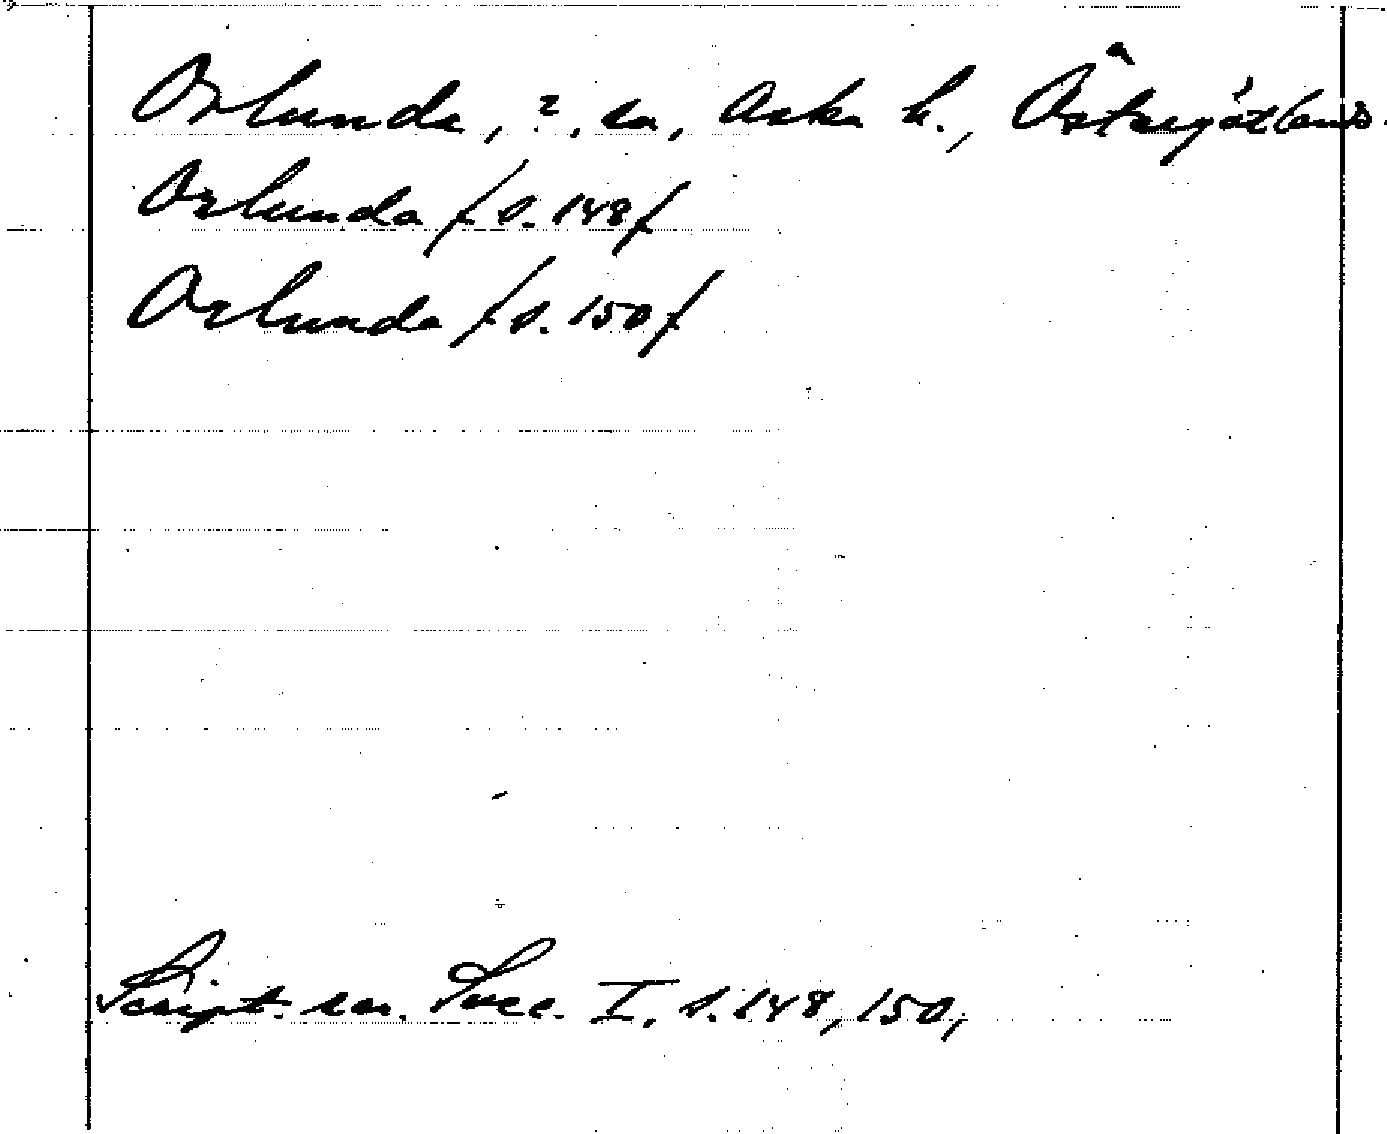 Orlunda, ?, sn, Aska h., Östergötland.
Orlunda /s. 148/
Orlunda /s. 150/
Script. rer. Svec. I, s. 148, 150,